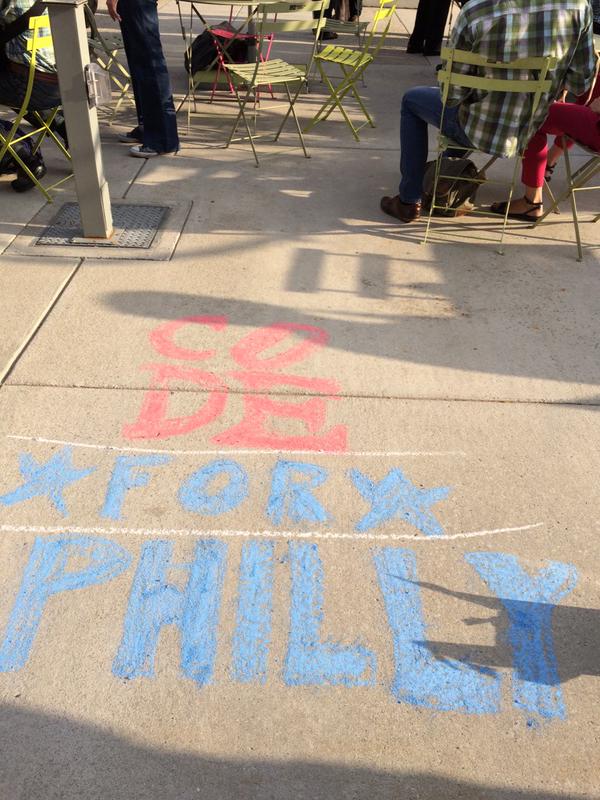 CO
DE
FOR
PHILLY